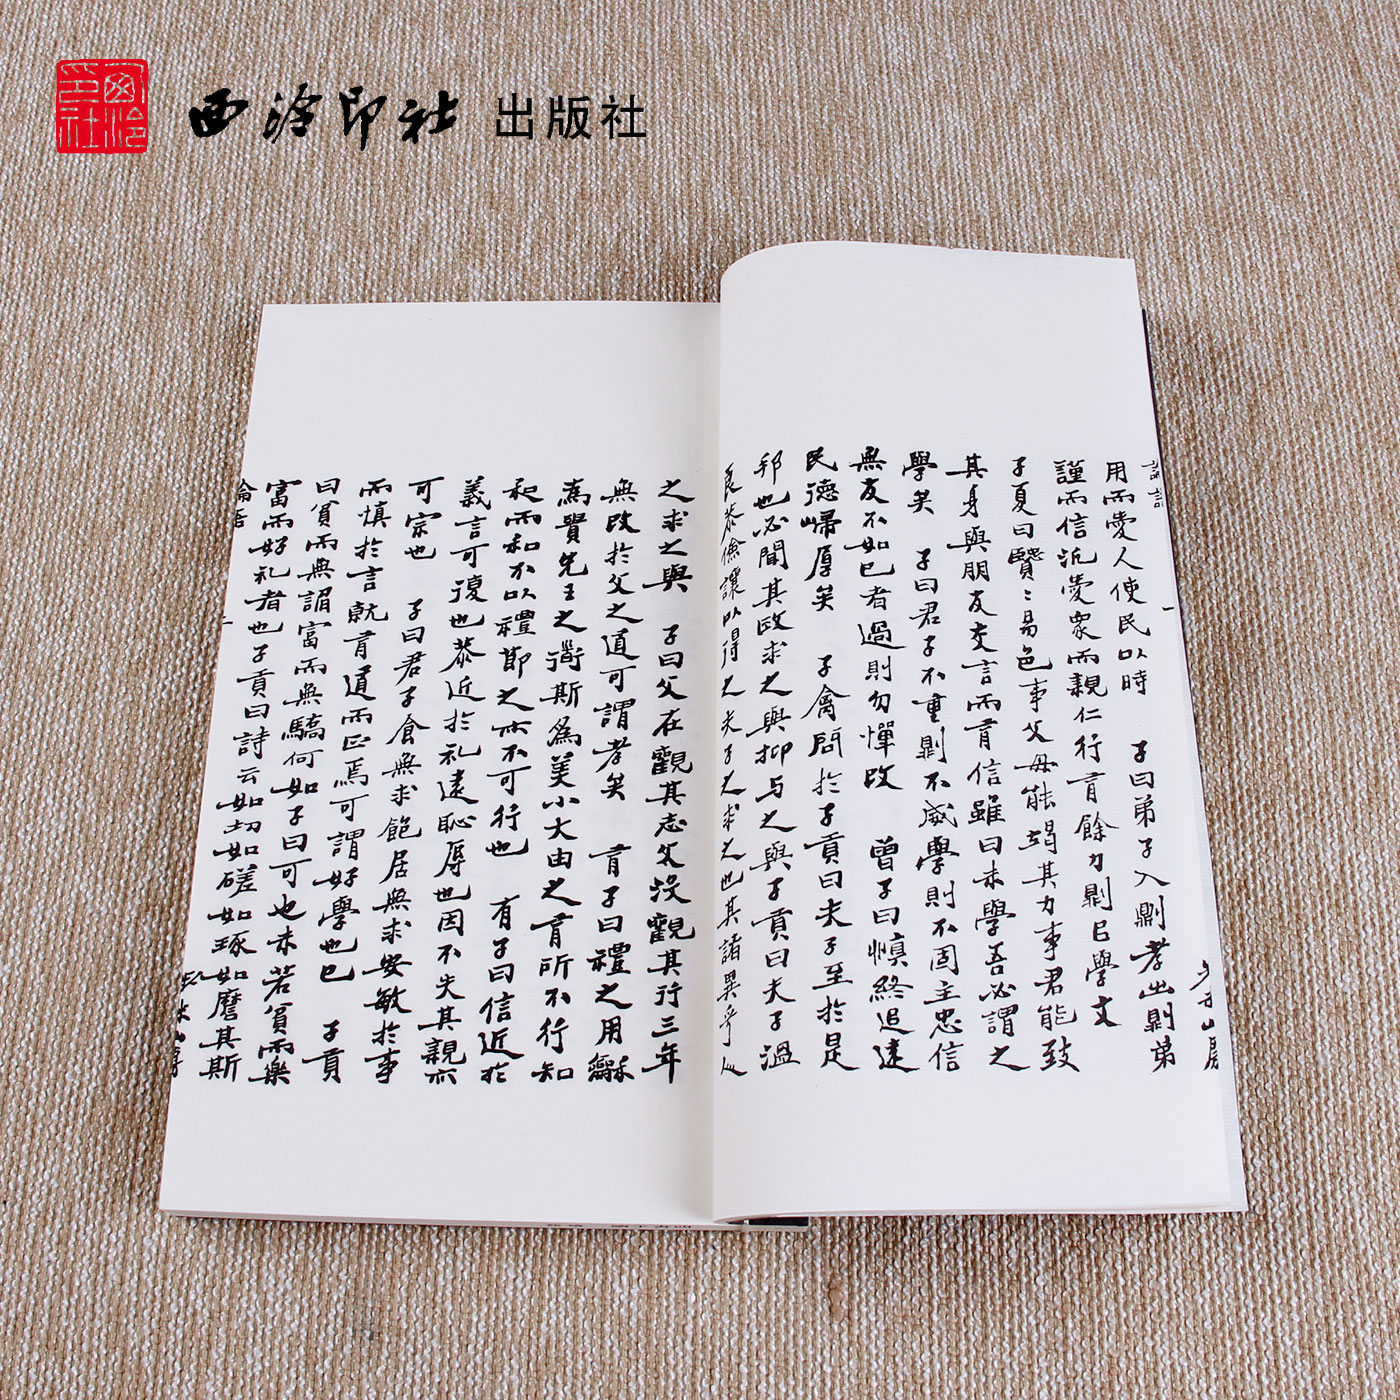 西泠印社
西泠印社 出版社
論語
一
用而愛人使民以時 子曰弟子入則孝出則弟
謹而信汎愛眾而親仁行有餘力則已學文
子夏曰賢〻易色事父毋能竭其力事君能致
其身與朋友交言而有信雖曰未學吾必謂之
學矣 子曰君子不重則不威學則不固主忠信
無友不如已者過則勿憚改 曾子曰慎終追遠
民德歸厚矣 子禽問於子貢曰夫子至於是
邦也必聞其政求之與抑与之與子貢曰夫子溫
良恭儉讓以得之夫子之求之也其諸異乎人
之求之與 子曰父在觀其志父沒觀其行三年
無改於父之道可謂孝矣 有子曰禮之用龢
為貴先王之道斯為美小大由之有所不行知
和而和不以禮節之亦不可行也 有子曰信近於
義言可復也恭近於礼遠恥辱也因不失其親亦
可宗也 子曰君子食無求飽居無求安敏於事
而慎於言就有道而正焉可謂好學也已 子貢
曰貧而無諂富而無驕何如子曰可也未若貧而樂
富而好礼者也子貢曰詩云如切如磋如琢如磨其斯
論語
一